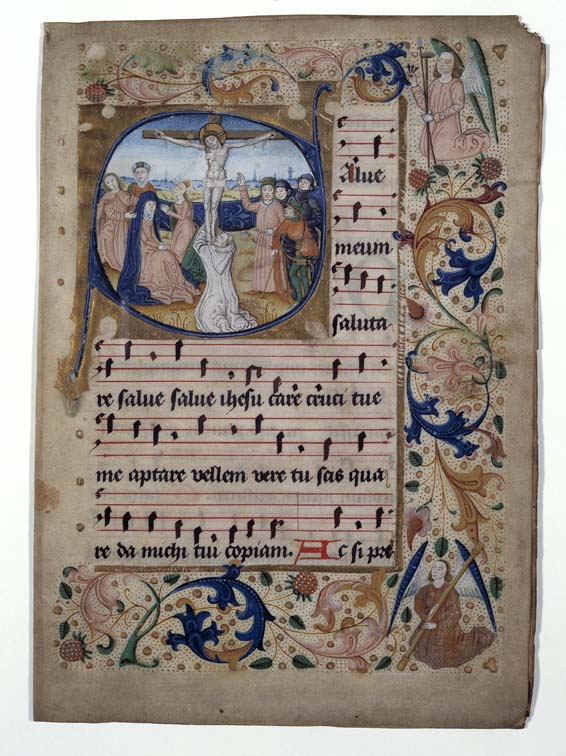 SAlue
meum
saluta
re salue salue ihesu care cruci tue
me aptare vellem vere tu scis qua
re da michi tui copiam. Ac si pre